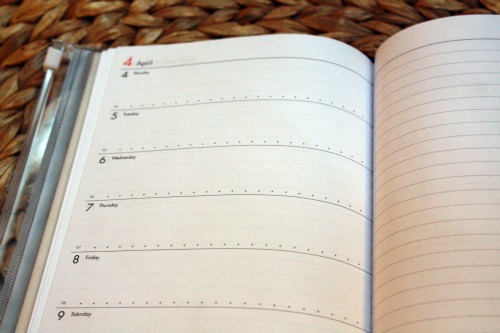 4 April
4 Monday
5 Tuesday
6 Wednesday
7 Thursday
8 Friday
9 Saturday